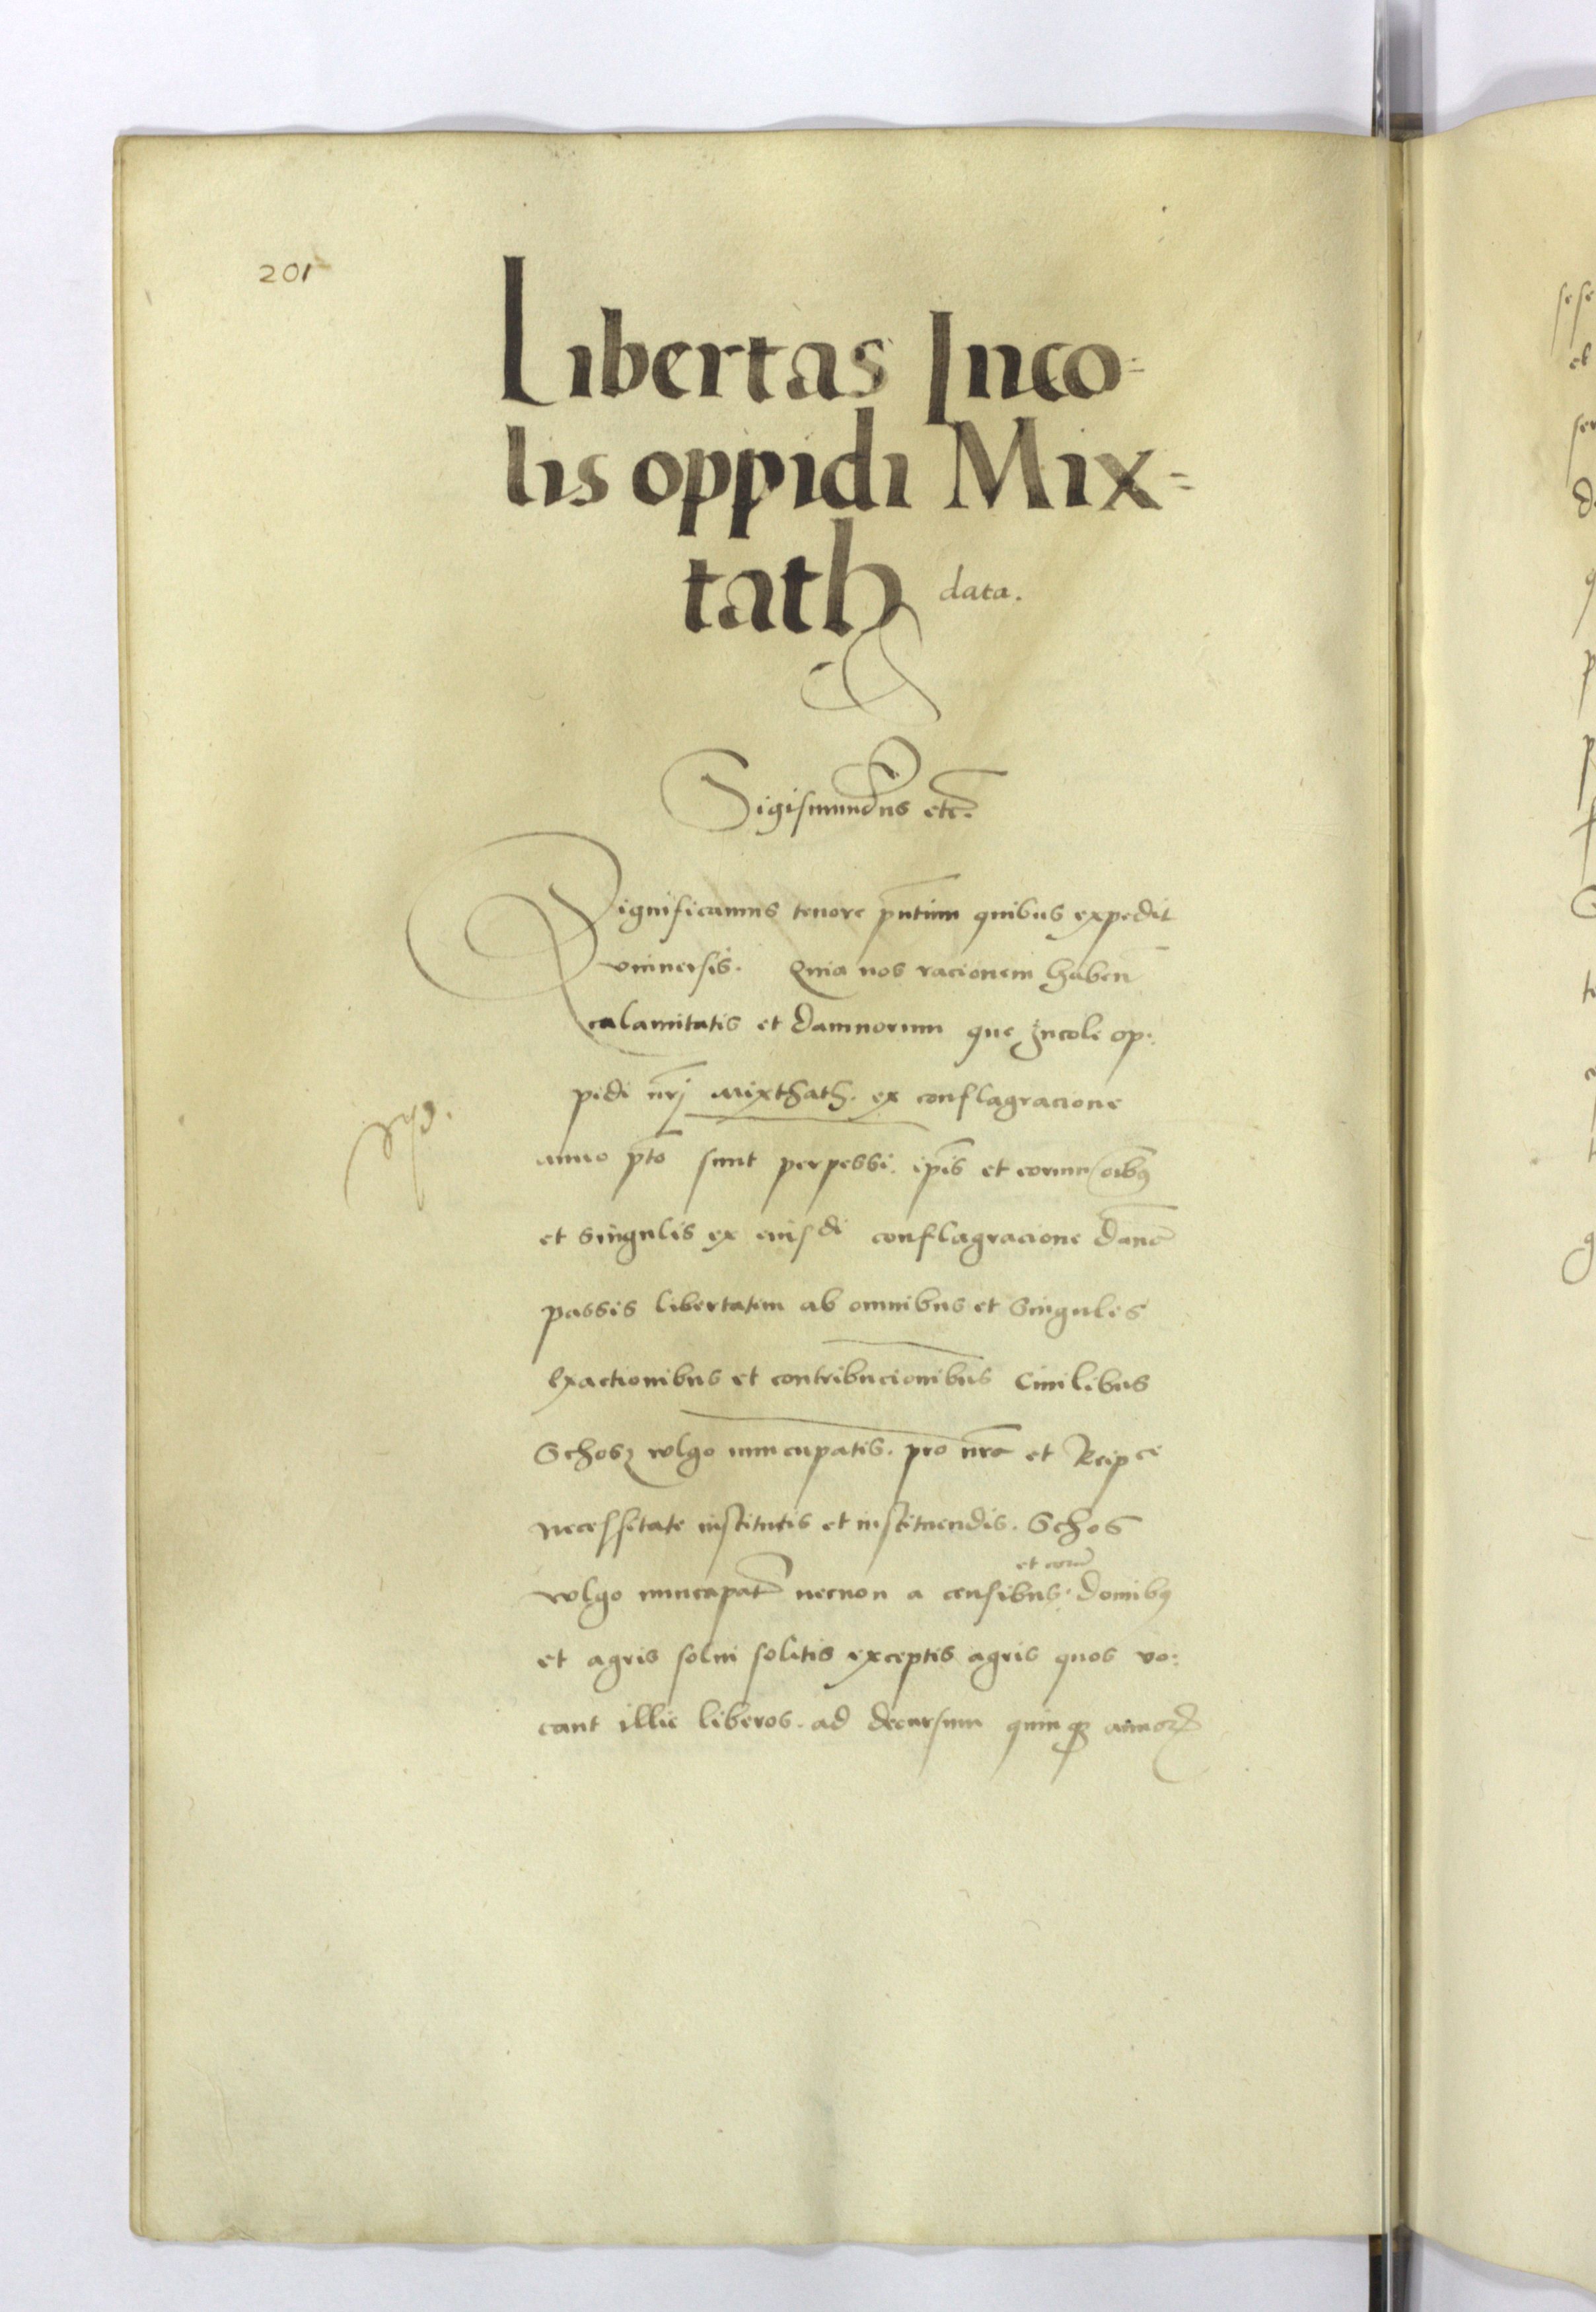 201
Libertas Inco=
lis oppidi Mix=
tath data.
Sigismundus etc.
Significamus tenore pntium quibus expedit
vniuersis. Quia nos racionem haben
calamitatis et damnorum que Incole op:
pidi nrj Mixthath. ex conflagracione
anno pto sunt perpessi. ipis et eorum oibus
et singulis ex eiusdi conflagracione damc
passis libertatem ab omnibus et singulis
exactionibus et contribucionibus Ciuilibus
Schosz wlgo nuncupatis. pro nra et Reipce
necessitate institutis et instituendis. Schos
wlgo nuncapat necnon a censibus. et eorum domibus
et agris solui solitis exceptis agris quos vo:
cant illic liberos. ad decursum quinque annorum